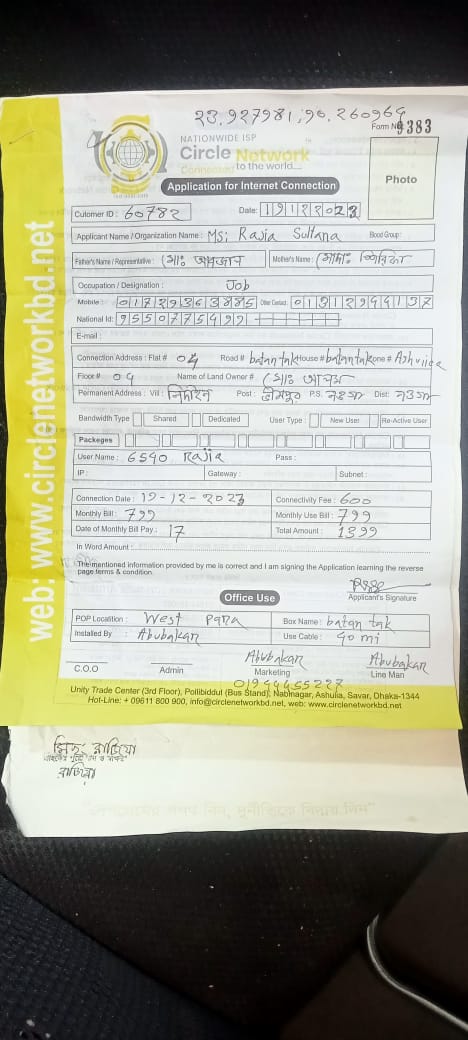 23.927981, 90.260964
Form No 9383
NATIONWIDE ISP
Circle Network
Connected to the world....
Application for Internet Connection
Photo
Cutomer ID : 60782 Date: 19122023
Applicant Name / Organization Name : MS; Rajia Sultana Bood Group:
Father's Name / Representative : Mother's Name :
Occupation / Designation : Job
Mobile : 01729363885 Other Contact :
National Id : 9550775499
E-mail :
Connection Address : Flat # 04 Road # batantak House # batantak one #
Floor # 04 Name of Land Owner #
Permanent Address : Vill : Post : P.S. Dist:
Bandwidth Type Shared Dedicated User Type : New User Re-Active User
Packeges
User Name : 6590 Rajia Pass :
IP : Gateway : Subnet :
Connection Date : 19-12-2023 Connectivity Fee : 600
Monthly Bill : 799 Monthly Use Bill : 799
Date of Monthly Bill Pay : 17 Total Amount : 1399
In Word Amount :
The mentioned information provided by me is correct and I am signing the Application learning the reverse
page terms & condition.
Applicant's Signature
Office Use
POP Locattion : West Para Box Name : batan tak
Installed By : Abubakar Use Cable : 40 mi
Abubakar Abubakar
C.O.O Admin Marketing Line Man
01944455227
Unity Trade Center (3rd Floor), Pollibiddut (Bus Stand), Nabinagar, Ashulia, Savar, Dhaka-1344
Hot-Line: + 09611 800 900, info@circlenetworkbd.net, web: www.circlenetworkbd.net
web: www.circlenetworkbd.net
রাজিয়া
রাজিয়া